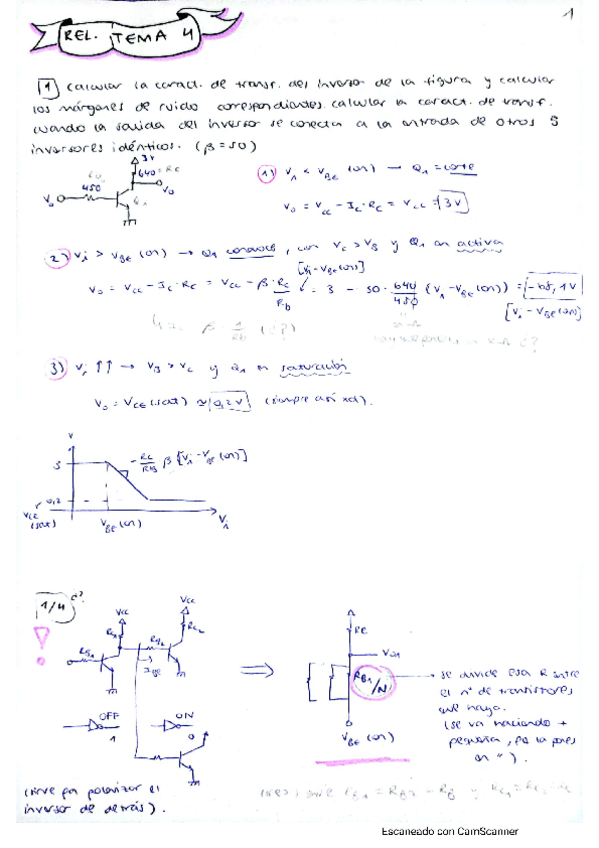 1
REL. TEMA 4
1) Calcular la caract. de transf. del inversor de la figura y calcular
los márgenes de ruido correspondientes. Calcular la caract. de transf.
cuando la salida del inversor se conecta a la entrada de otros 5
inversores idénticos. (β = 50)
3V
640 = Rc
450
Vo
1) Vi < VBE (on) → Q1 = corte
Vo = Vcc - Ic · Rc = Vcc = 3V
2) Vi > VBE (on) → Q1 conduce, con Vc > VB y Q1 en activa
Vo = Vcc - Ic · Rc = Vcc - β · Rc/Rb [Vi - VBE (on)] = 3 - 50 · 640/450 (Vi - VBE (on))
[Vi - VBE (on)]
β · 1/Rb (¿?)
3) Vi ↑↑ → VB > Vc y Q1 en saturación
Vo = VCE (sat) ≈ 0,2V (siempre así xa).
V
3
- Rc/RB β [Vi - VBE (on)]
0,2
VCE (sat)
VBE (on)
Vi
1/4
Vcc
Vcc
OFF
ON
1
0
Rc
Vo1
RB1/N
VBE (on)
se divide esa R entre
el nº de transistores
que haya.
(se va haciendo +
pequeña,
(sirve pa polarizar el
inversor de detrás).
Escaneado con CamScanner